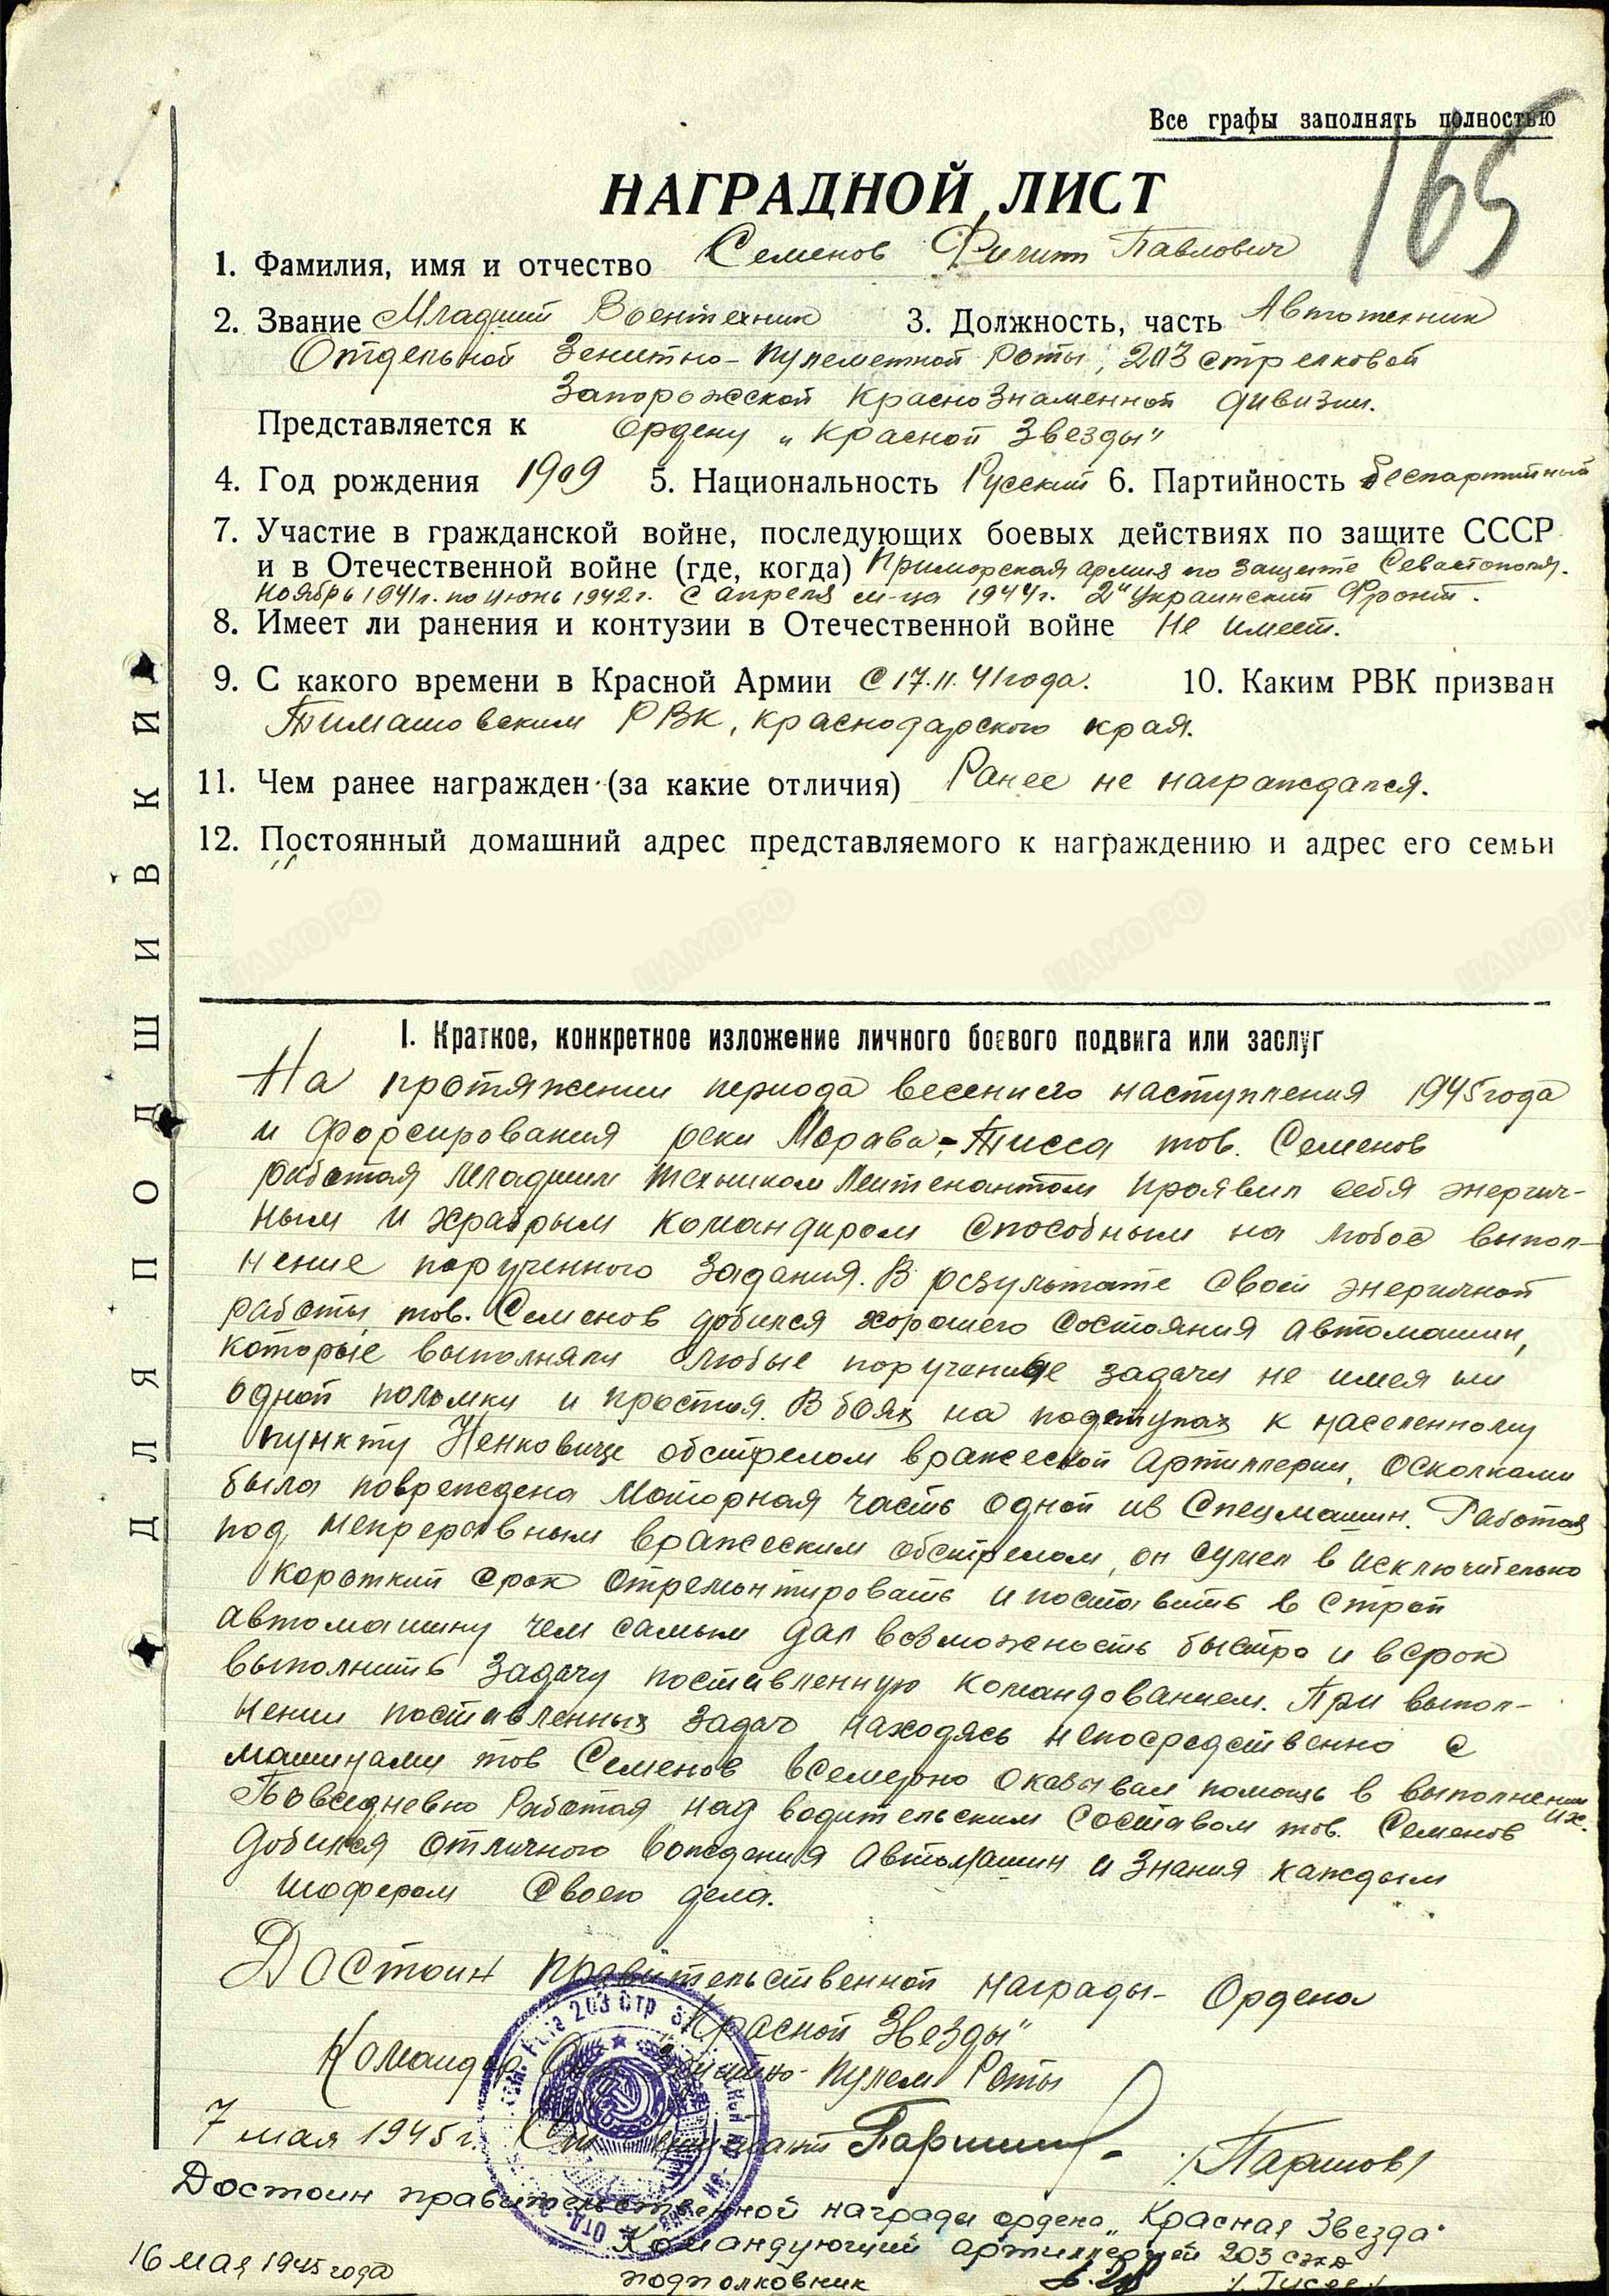 Все графы заполнять полностью
165
НАГРАДНОЙ ЛИСТ
1. Фамилия, имя и отчество Семенов Филипп Павлович
2. Звание Младший Воентехник 3. Должность, часть Автотехник
Отдельной Зенитно-пулеметной роты, 203 стрелковой
Запорожской Краснознаменной дивизии.
Представляется к Ордену „Красной Звезды"
4. Год рождения 1909 5. Национальность Русский 6. Партийность беспартийный
7. Участие в гражданской войне, последующих боевых действиях по защите СССР
и в Отечественной войне (где, когда) Приморская армия по защите Севастополя.
Ноябрь 1941г. по июнь 1942г. С апреля м-ца 1944г. 2й Украинский Фронт.
8. Имеет ли ранения и контузии в Отечественной войне Не имеет.
9. С какого времени в Красной Армии С 17.11.41 года. 10. Каким РВК призван
Тимашовским РВК, Краснодарского края.
11. Чем ранее награжден (за какие отличия) Ранее не награждался.
12. Постоянный домашний адрес представляемого к награждению и адрес его семьи
ДЛЯ ПОДШИВКИ
I. Краткое, конкретное изложение личного боевого подвига или заслуг
На протяжении периода весеннего наступления 1945 года
и форсирования реки Морава, Тисса тов. Семенов
работая младшим техником Лейтенантом проявил себя энергич-
ным и храбрым командиром способным на любое выпол-
нение порученного задания. В результате своей энергичной
работы тов. Семенов добился хорошего состояния автомашин,
которые выполняли любые порученые задачи не имея ни
одной поломки и простоя. В боях на подступах к населенному
пункту Ненковице обстрелом вражеской Артиллерии, осколками
была повреждена моторная часть одной из Спецмашин. Работая
под непрерывным вражеским обстрелом, он сумел в исключительно
короткий срок отремонтировать и поставить в строй
автомашину чем самым дал возможность быстро и в срок
выполнить задачу поставленную командованием. При выпол-
нении поставленных задач находясь непосредственно с
машинами тов Семенов всемерно оказывал помощь в выполнении
их.
Повседневно работая над водительским составом тов. Семенов
добился отличного вождения Автомашин и знания каждым
шофером своего дела.
Достоин правительственной награды - Ордена
„Красной Звезды"
Командир Зенитно-пулем Роты
7 мая 1945г. лейтенант Паршин /Паршов/
Достоин правительственной награды ордена „Красная Звезда"
Командующий артиллерией 203 сзкд
16 мая 1945 года подполковник /Гусев/